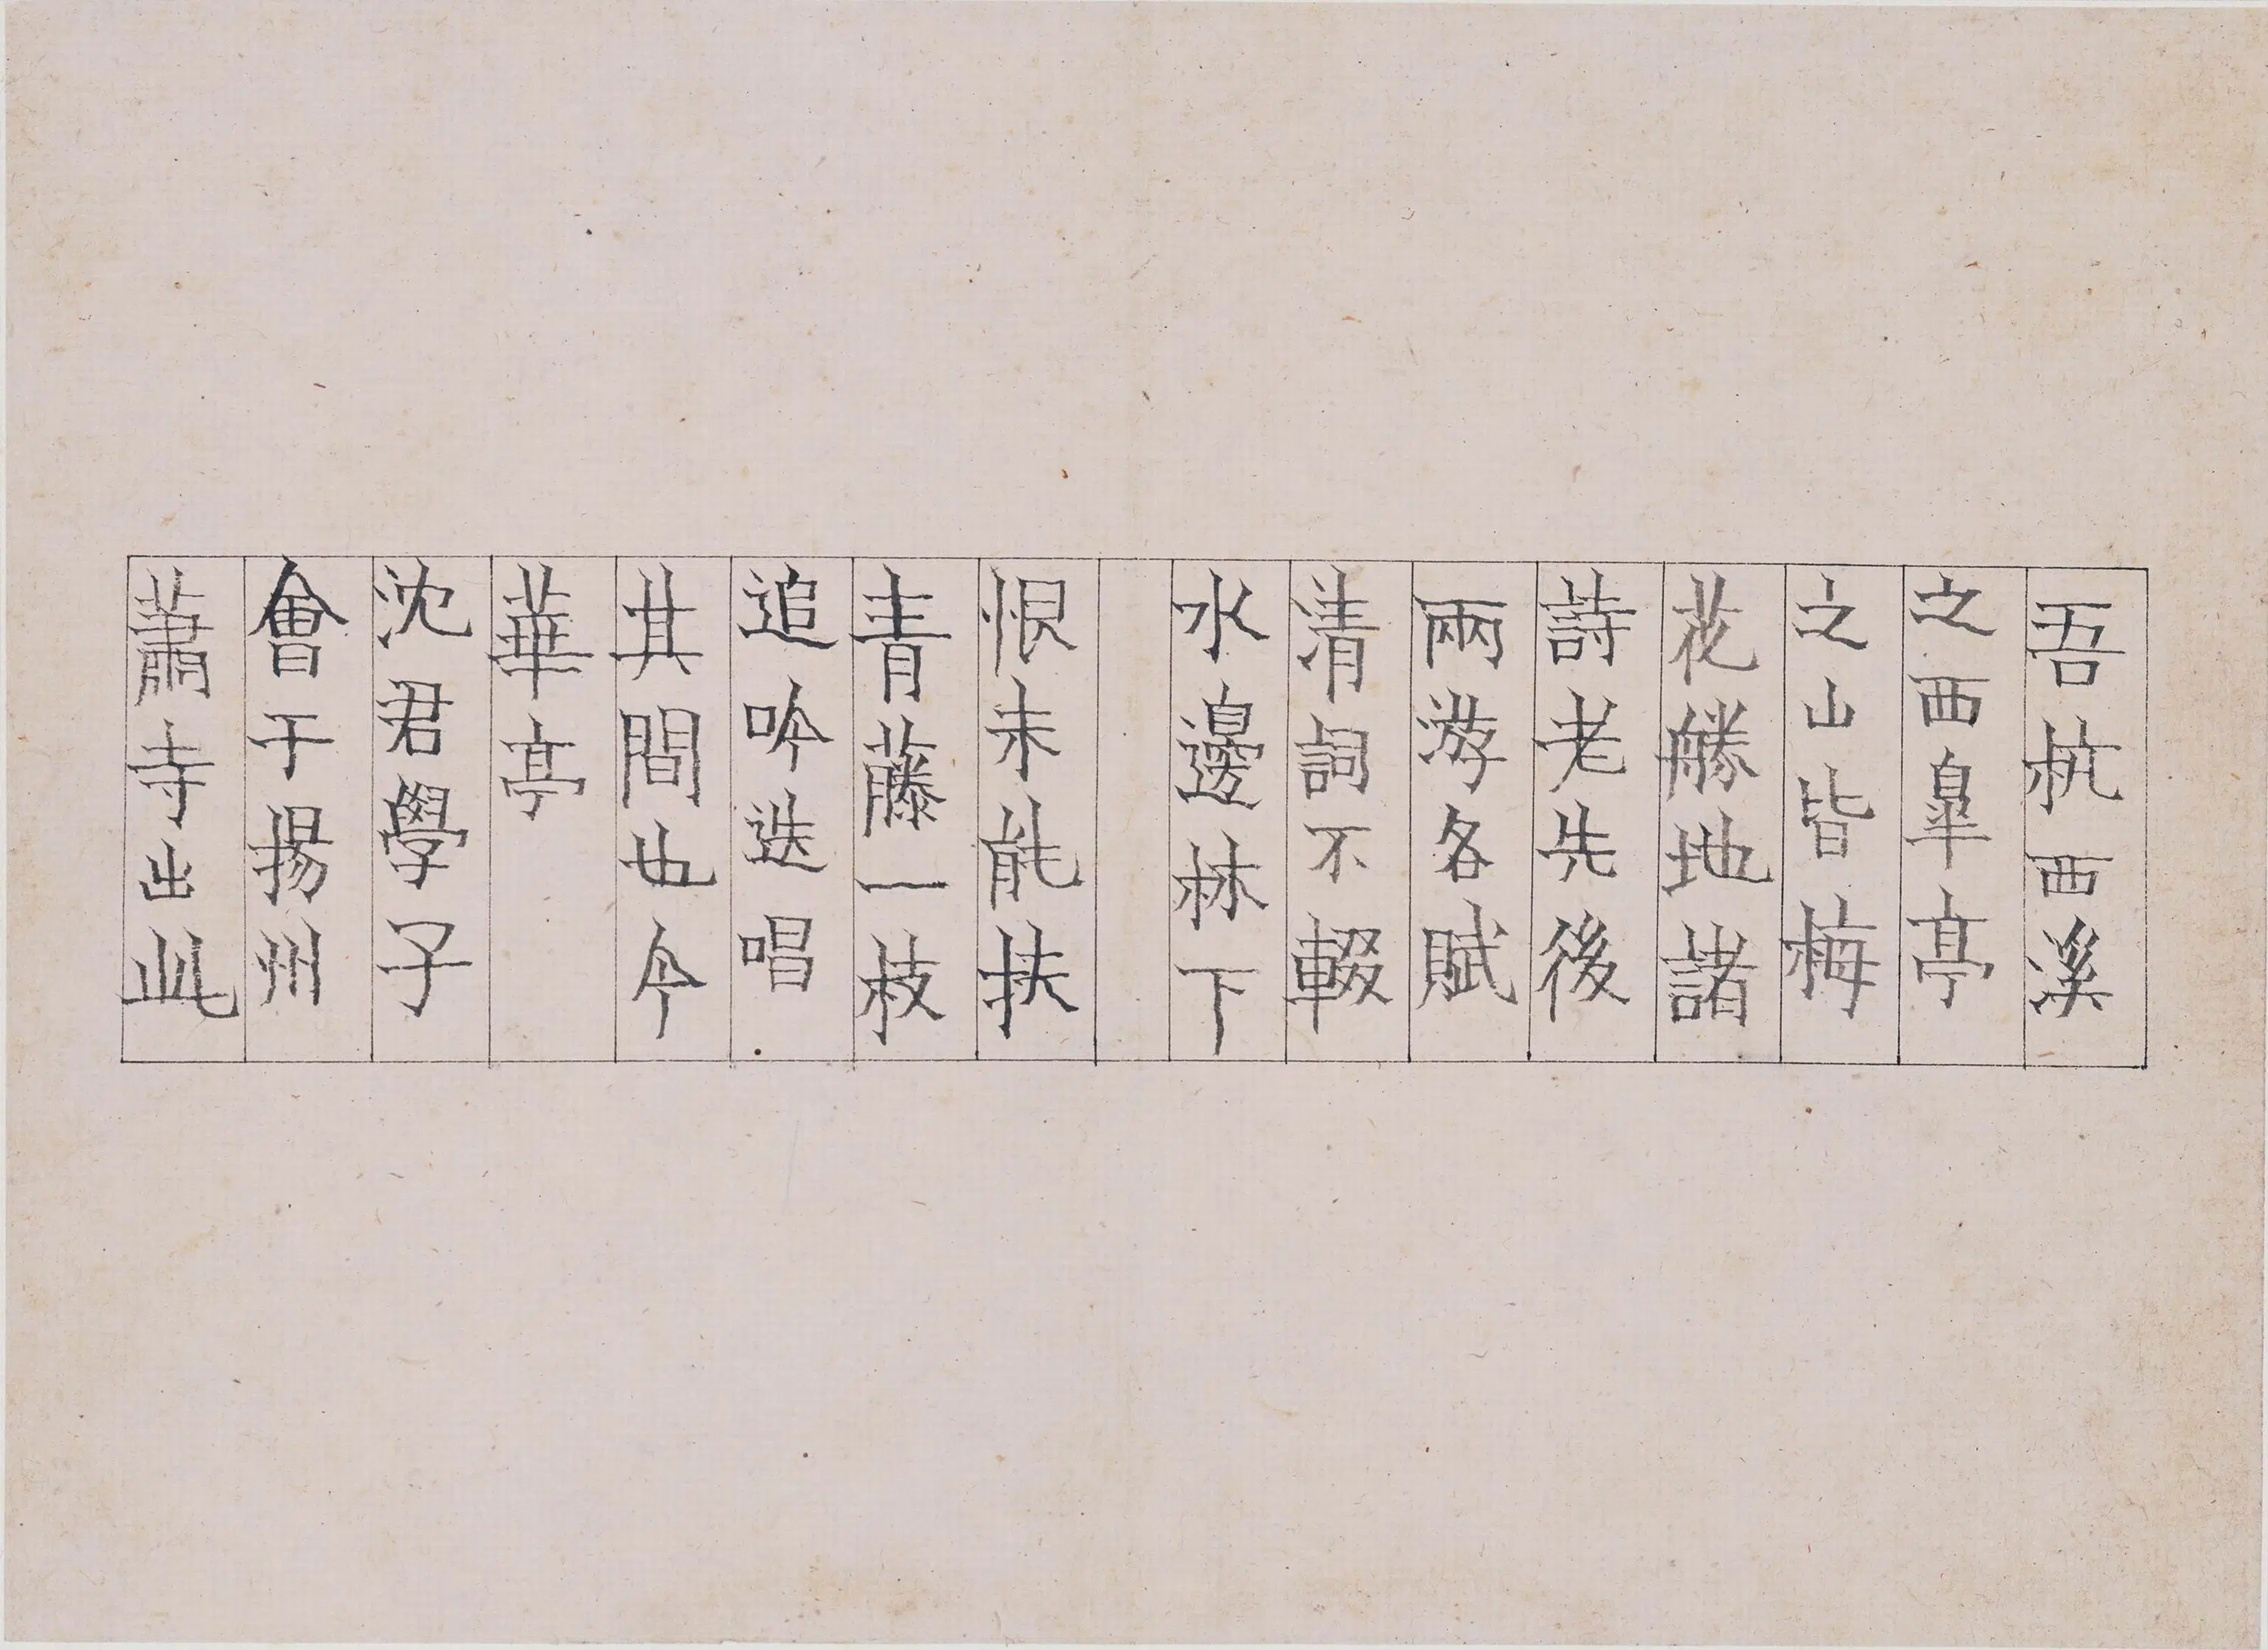 吾杭西溪
之西皐亭
之山皆梅
花勝地諸
詩老先後
兩游各賦
清詞不輟
水邊林下
恨未能扶
青藤一枝
追吟迭唱
其間也今
華亭
沈君學子
會于揚州
蕭寺出此